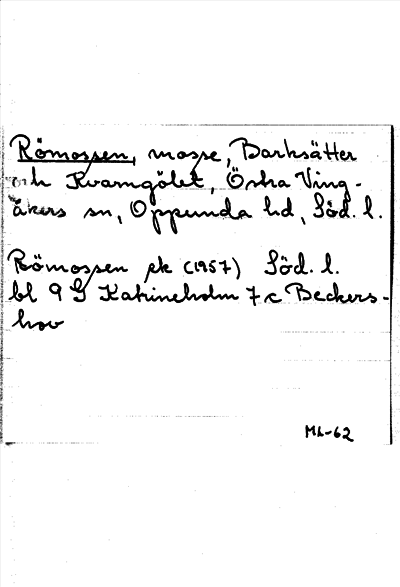 Römossen, mosse, Barksätter
och Kvarngölet, Östra Ving-
åkers sn, Oppunda hd, Söd. l.
Römossen ek (1957) Söd. l.
bl 9 G Katrineholm 7 c Beckers-
hov
ML-62